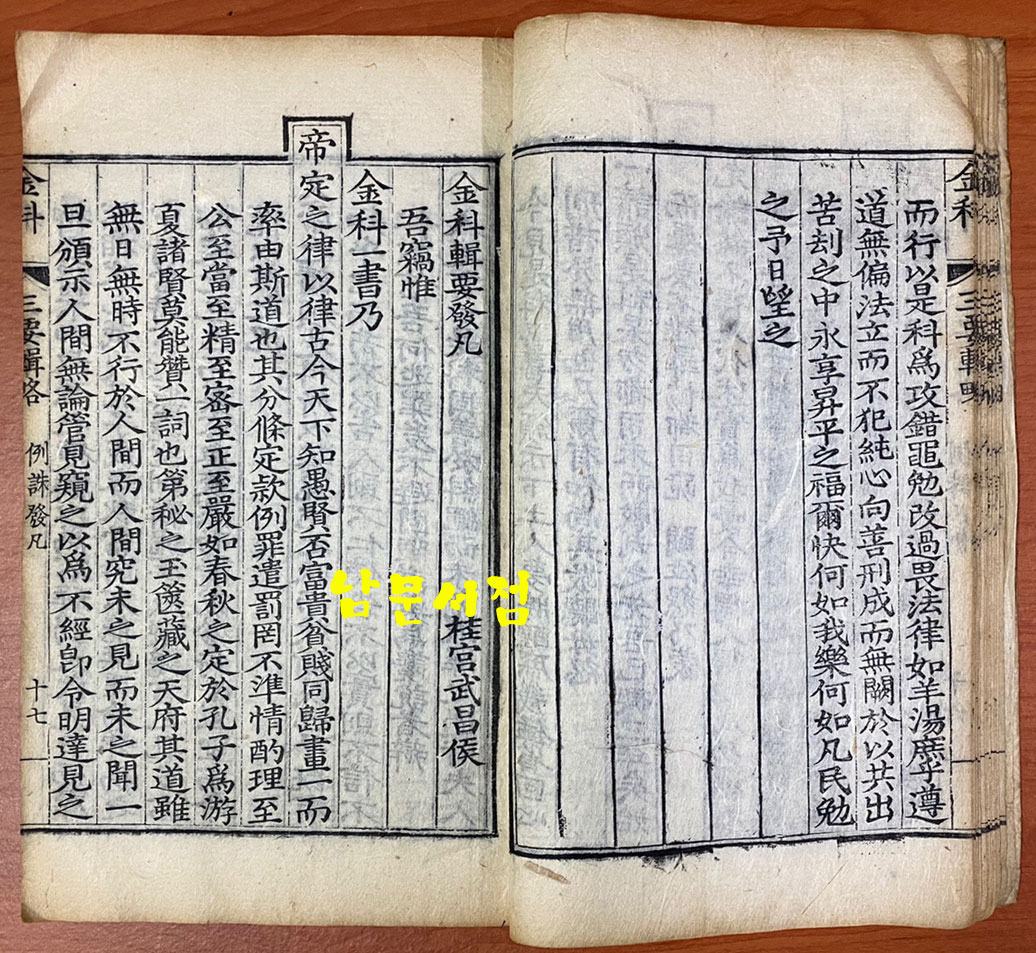 金科 三要輯畧
而行以是科爲攻錯黽勉改過畏法律如羊湯庶乎遵
道無偏法立而不犯純心向善刑成而無闕於以共出
苦刦之中永享昇平之福爾快何如我樂何如凡民勉
之予日望之
金科輯要發凡 桂宮武昌侯
吾竊惟
金科一書乃
帝定之律以律古今天下知愚賢否富貴貧賤同歸畫一而
率由斯道也其分條定款例罪遣罰罔不準情酌理至
公至當至精至密至正至嚴如春秋之定於孔子爲游
夏諸賢莫能贊一詞也第秘之玉篋藏之天府其道雖
無日無時不行於人間而人間究未之見而未之聞一
旦頒示人間無論管見窺之以爲不經卽令明達見之
金科 三要輯畧 例誅發凡 十七
남문서점